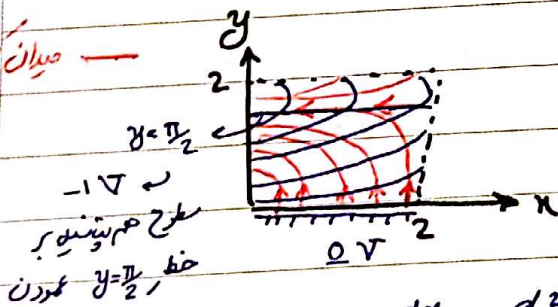 میدان
y
2
y=π/2
-1 V
سطوح هم پتانسیل بر
خط y=π/2 عمودن
0 V
2
x